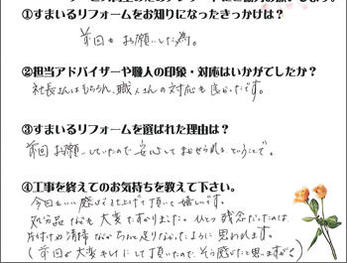 ①すまいるリフォームをお知りになったきっかけは？
前回もお願いした為。
②担当アドバイザーや職人の印象・対応はいかがでしたか？
社長さんはもちろん、職人さんの対応も良かったです。
③すまいるリフォームを選ばれた理由は？
前回お願いしていたので安心してまかせられるということで。
④工事を終えてのお気持ちを教えて下さい。
今回もいい感じに仕上げて頂いて嬉しいです。
処分品なども大変たすかりました。ひとつ残念だったのは
片付け清掃などちょっと足りなかったように思われます。
(前回が大変キレイにして頂いたのでそう感じたと思いますが)